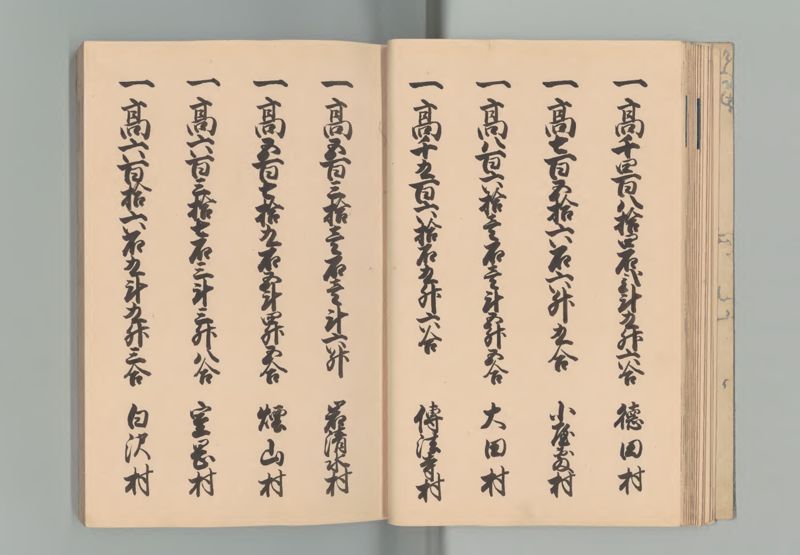 一高千四百八拾四石弐斗九升六合 徳田村
一高七百五拾六石六升九合 小屋敷村
一高八百六拾壱石壱斗五升五合 大田村
一高千五百六拾石九升六合 傳法寺村
一高五百三拾壱石壱斗六升 岩清水村
一高五百七拾九石五斗四升五合 煙山村
一高六百三拾七石三斗三升八合 室岡村
一高六百拾六石九斗九升三合 白沢村